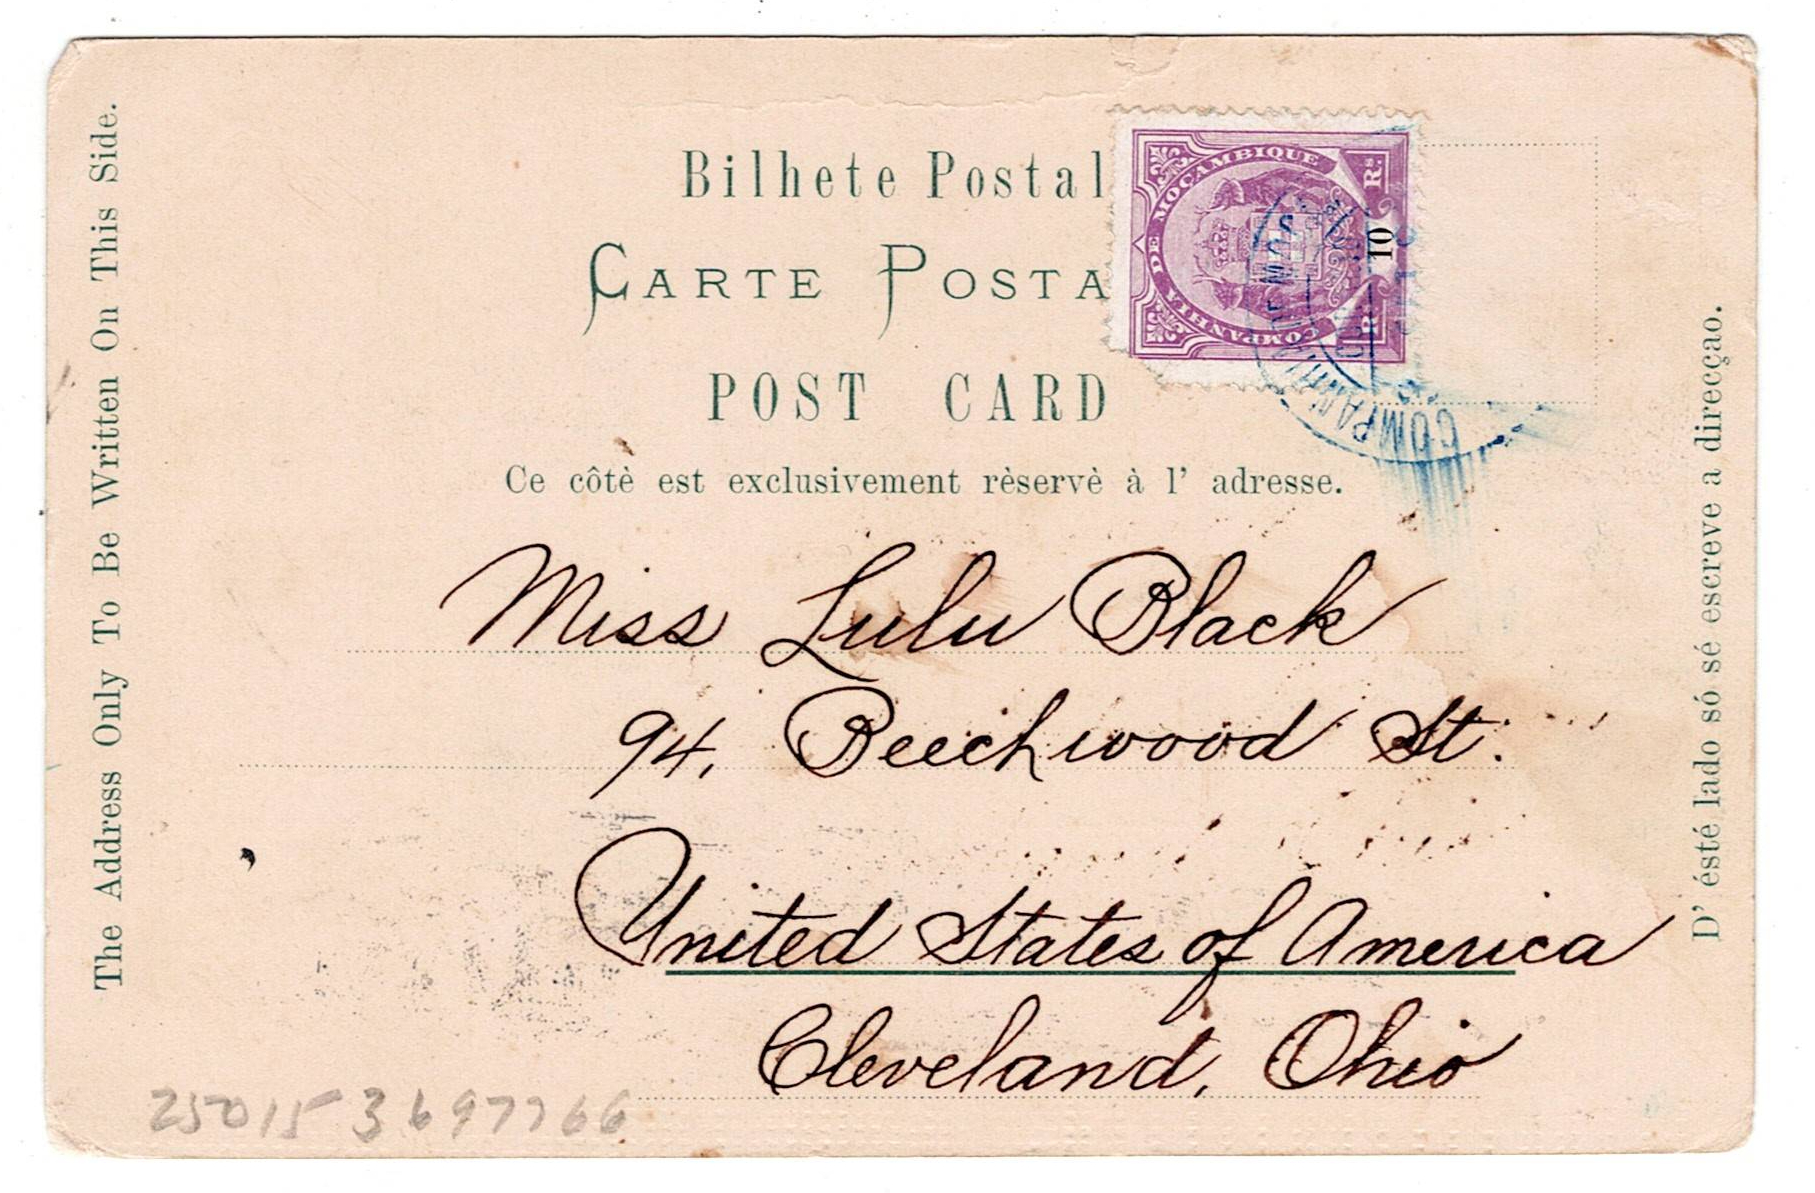 Bilhete Postal
CARTE POSTA
POST CARD
Ce côtè est exclusivement rèservè à l' adresse.
The Address Only To Be Written On This Side.
D' ésté lado só sé escreve a direcçao.
COMPANHIA DE MOÇAMBIQUE
Rs.
10
R
COMPANHIA DE MOC
Miss Lulu Black
94, Beechwood St.
United States of America
Cleveland, Ohio
25015 3697766